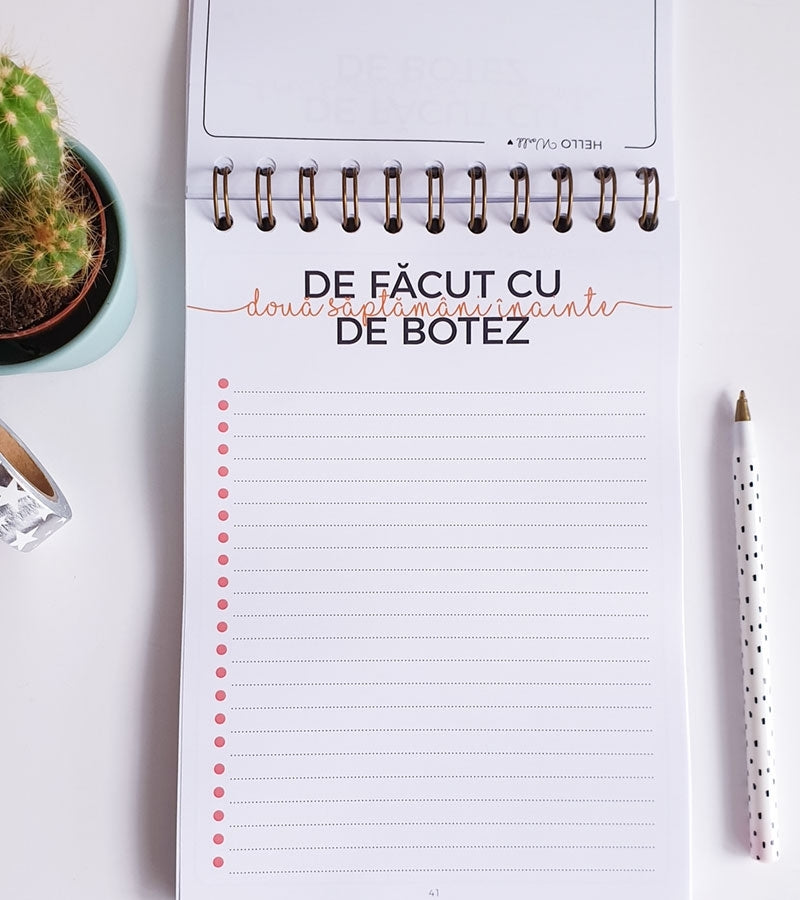 HELLO World ♥
DE FĂCUT CU
două săptămâni înainte
DE BOTEZ
41